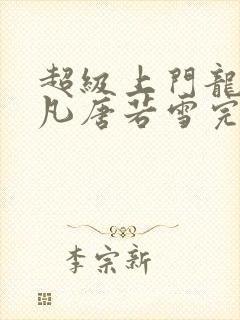 超級上門龍
凡唐若雪完
李宗新